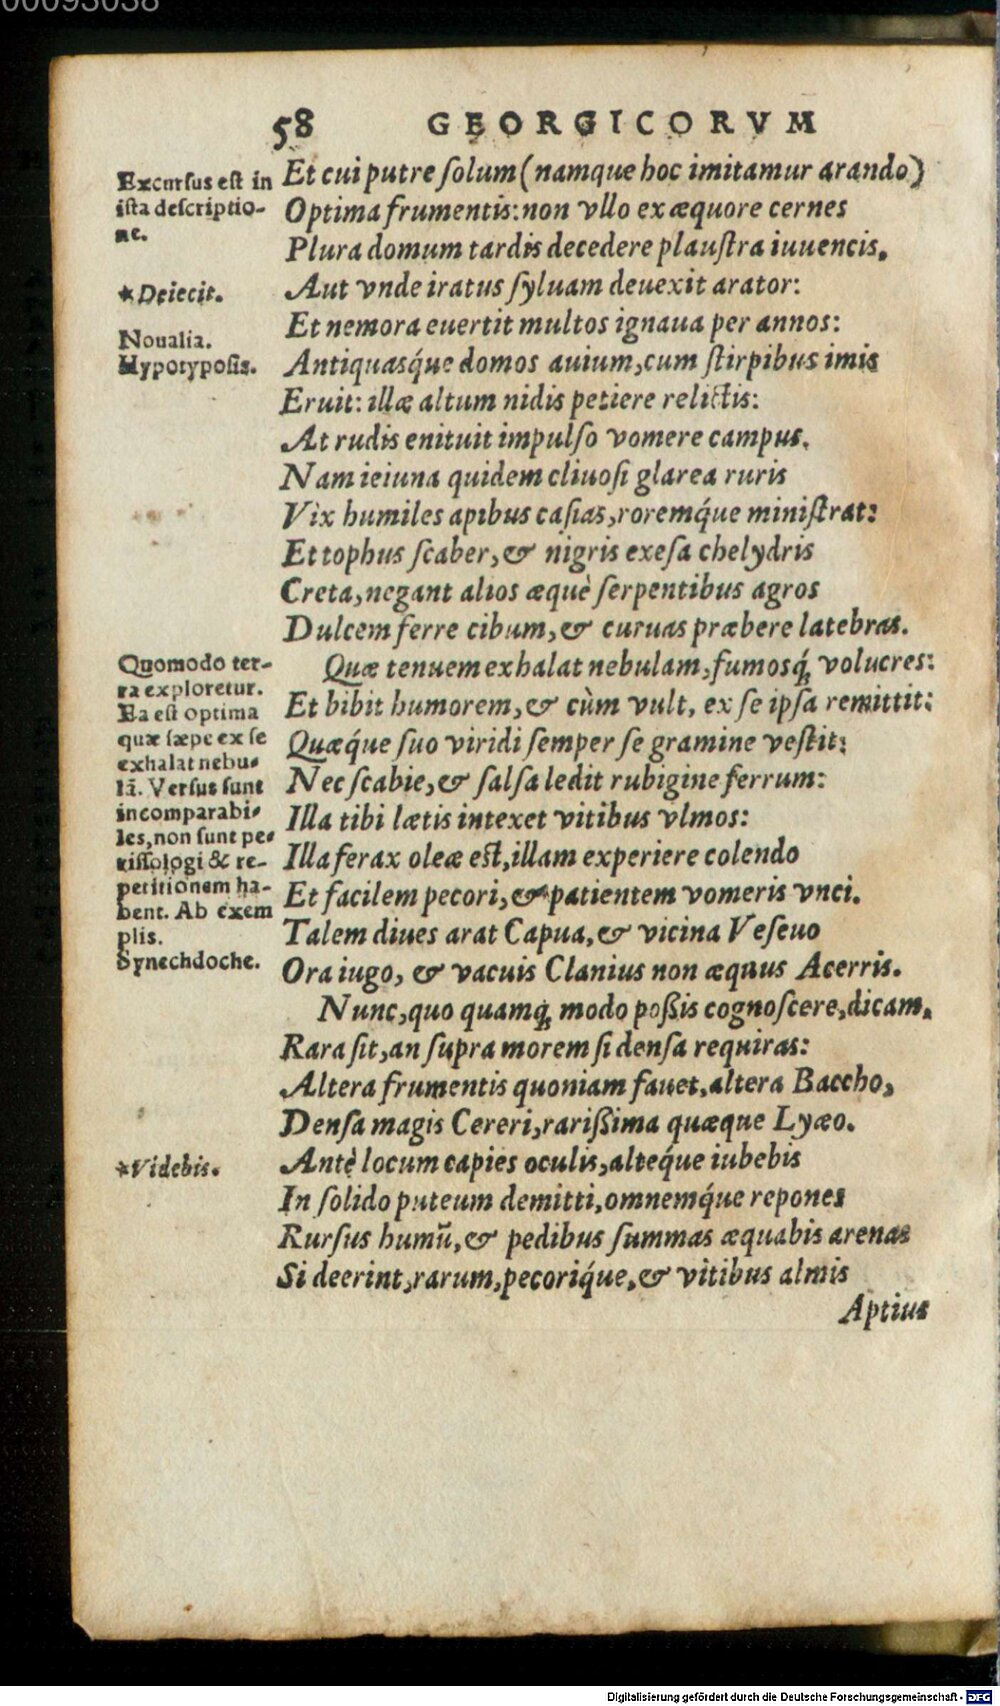 00093038
58 GEORGICORVM
Excursus est in
ista descriptio-
ne.
*Deiecit.
Noualia.
Hypotyposis.
Et cui putre solum (namque hoc imitamur arando)
Optima frumentis: non vllo ex æquore cernes
Plura domum tardis decedere plaustra iuuencis.
Aut vnde iratus syluam deuexit arator:
Et nemora euertit multos ignaua per annos:
Antiquasq́ue domos auium, cum stirpibus imis
Eruit: illæ altum nidis petiere relictis:
At rudis enituit impulso vomere campus.
Nam ieiuna quidem cliuosi glarea ruris
Vix humiles apibus casias, roremq́ue ministrat:
Et tophus scaber, & nigris exesa chelydris
Creta, negant alios æquè serpentibus agros
Dulcem ferre cibum, & curuas præbere latebras.
Quomodo ter-
ra exploretur.
Ea est optima
quæ sæpe ex se
exhalat nebu-
lã. Versus sunt
incomparabi-
les, non sunt pe-
rissologi & re-
petitionem ha-
bent. Ab exem
plis.
Synechdoche.
Quæ tenuem exhalat nebulam, fumosq́; volucres:
Et bibit humorem, & cùm vult, ex se ipsa remittit:
Quæq́ue suo viridi semper se gramine vestit:
Nec scabie, & salsa ledit rubigine ferrum:
Illa tibi lætis intexet vitibus vlmos:
Illa ferax oleæ est, illam experiere colendo
Et facilem pecori, & patientem vomeris vnci.
Talem diues arat Capua, & vicina Veseuo
Ora iugo, & vacuis Clanius non æquus Acerris.
Nunc, quo quamq; modo poßis cognoscere, dicam.
Rara sit, an supra morem si densa requiras:
Altera frumentis quoniam fauet, altera Baccho,
Densa magis Cereri, rarißima quæque Lyæo.
*Videbis.
Antè locum capies oculis, alteq́ue iubebis
In solido puteum demitti, omnemq́ue repones
Rursus humũ, & pedibus summas æquabis arenas
Si deerint, rarum, pecoriq́ue, & vitibus almis
Aptius
Digitalisierung gefördert durch die Deutsche Forschungsgemeinschaft - DFG